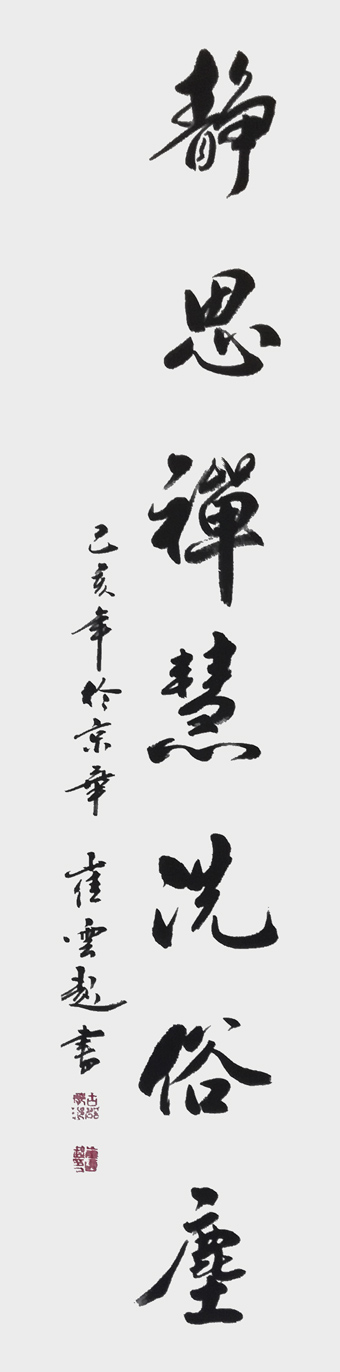 靜思禪慧洗俗塵
己亥年於京華 崔雲起書